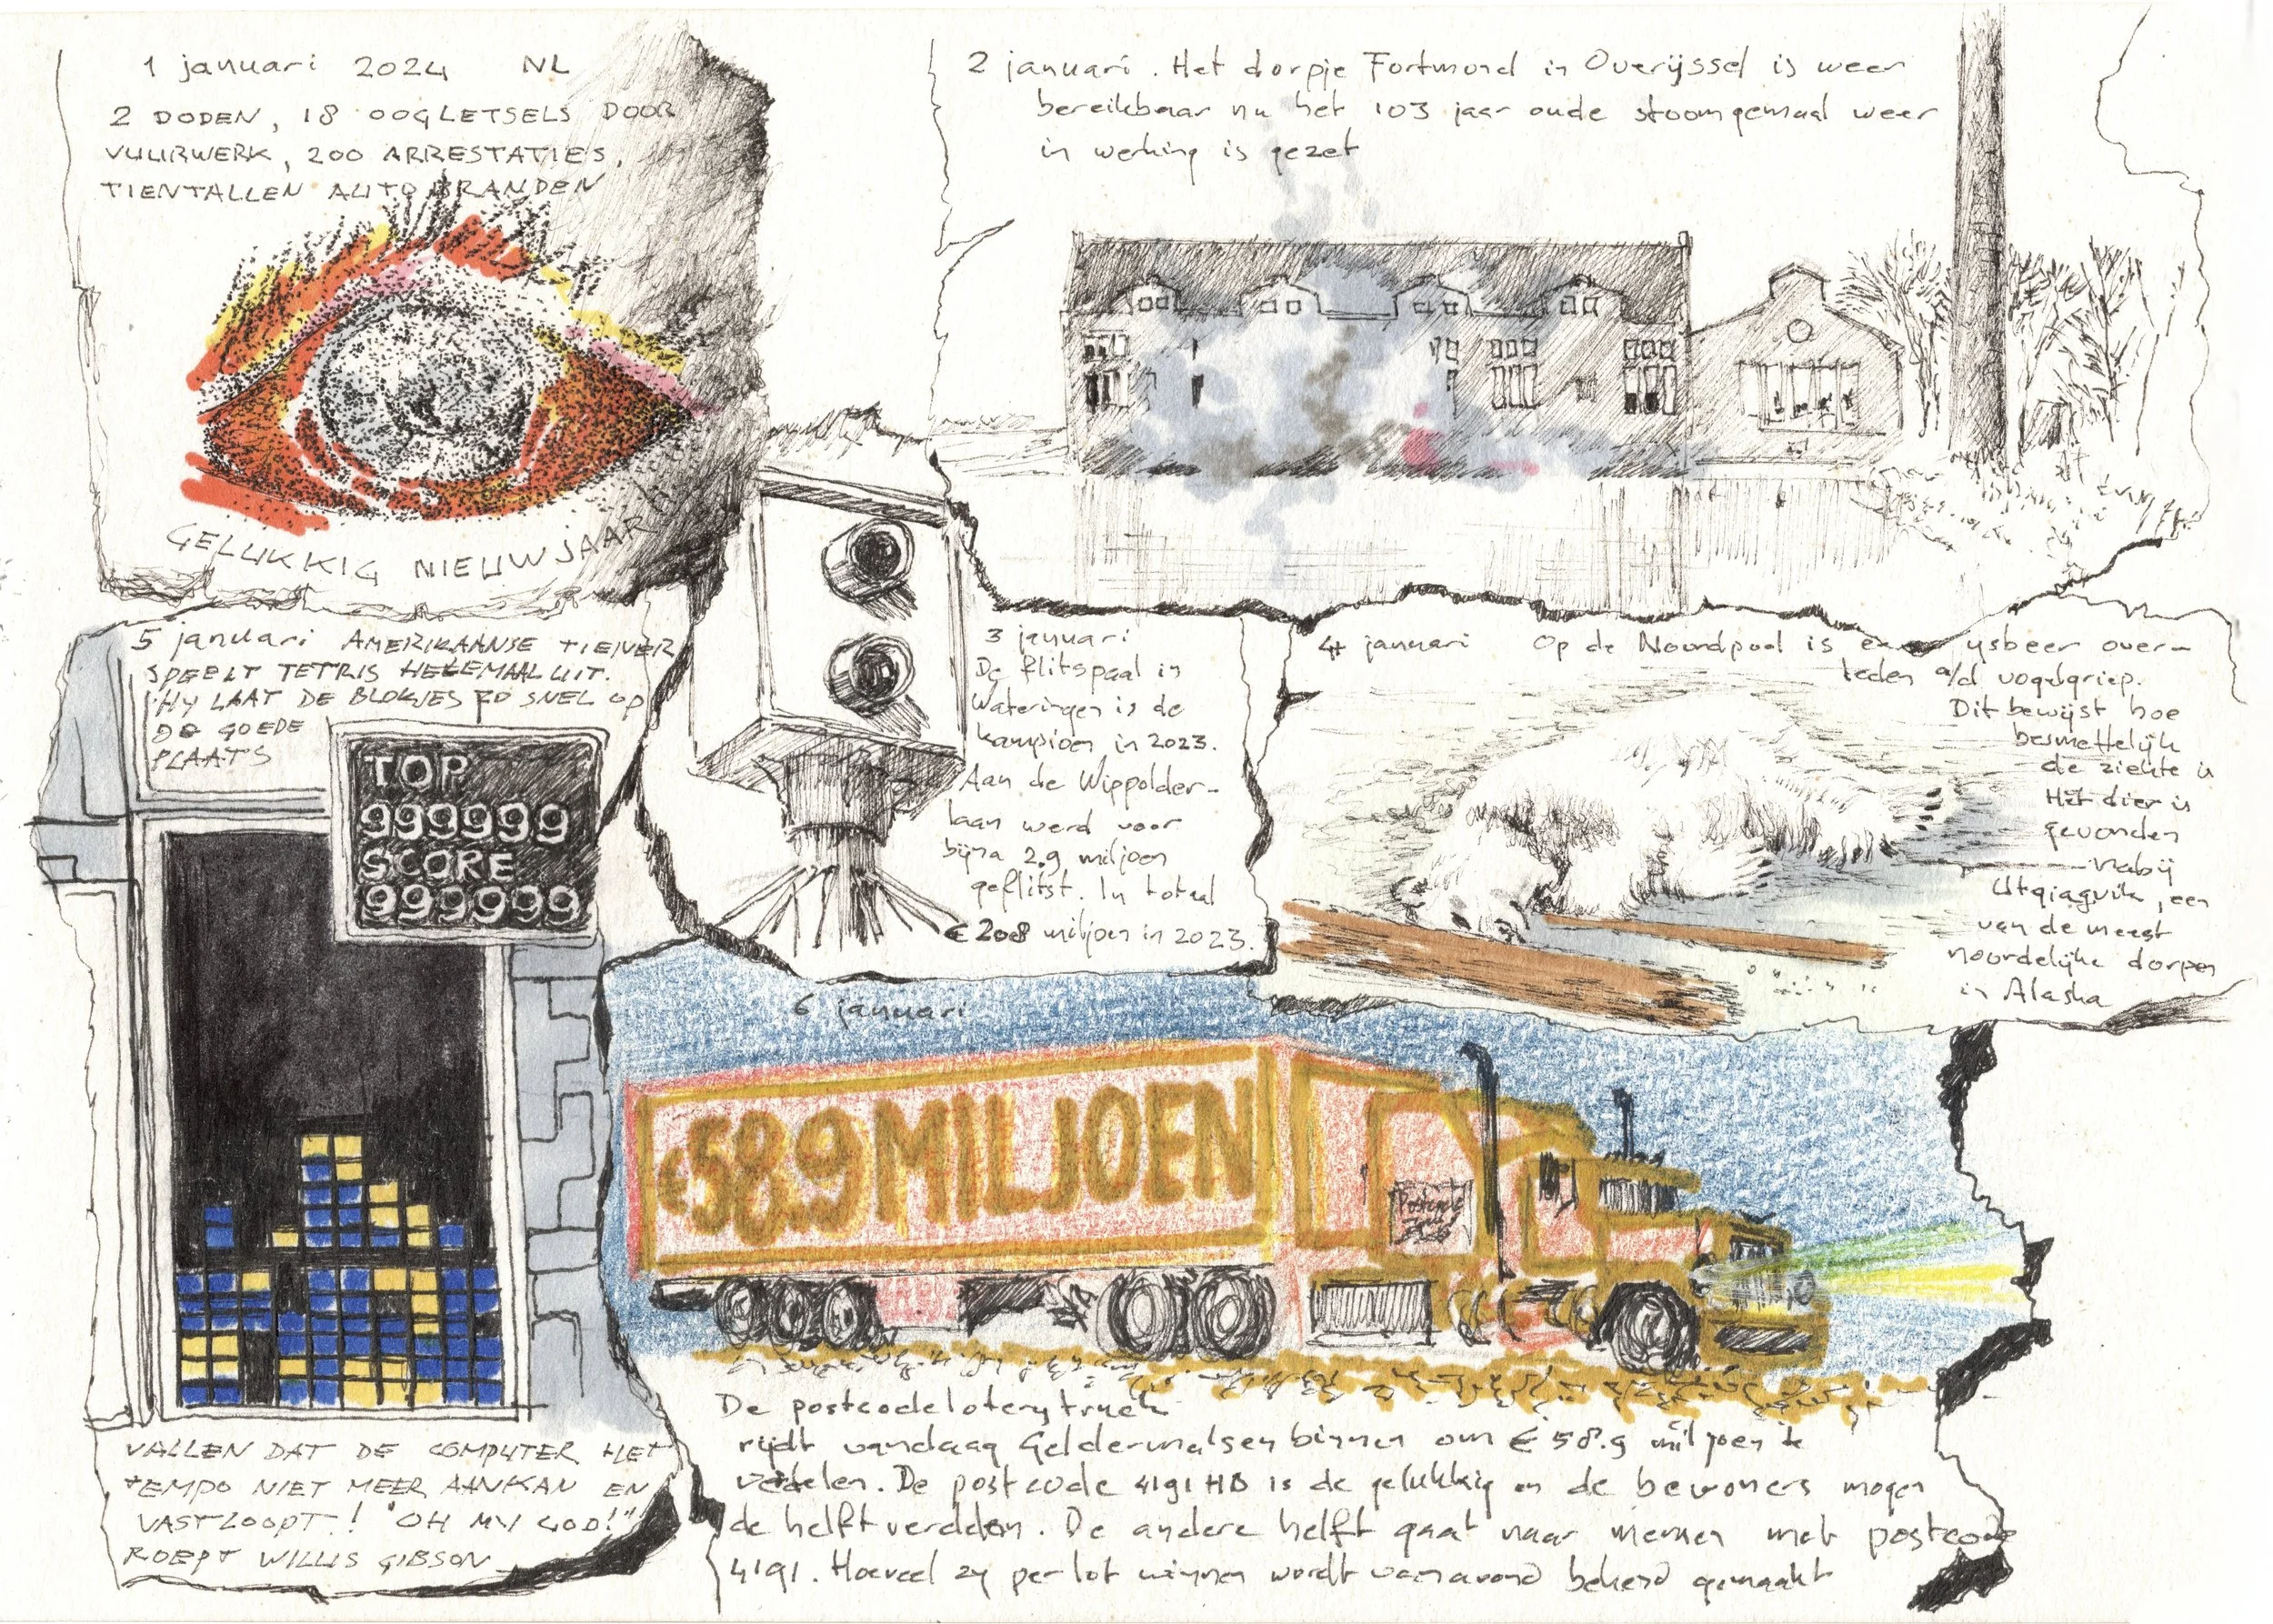 1 januari 2024 NL
2 DODEN, 18 OOGLETSELS DOOR
VUURWERK, 200 ARRESTATIES,
TIENTALLEN AUTOBRANDEN
GELUKKIG NIEUWJAAR
2 januari. Het dorpje Fortmond in Overijssel is weer
bereikbaar nu het 103 jaar oude stoomgemaal weer
in werking is gezet
3 januari
De flitspaal in
Wateringen is de
kampioen in 2023.
Aan de Wippolder-
laan werd voor
bijna 2.9 miljoen
geflitst. In totaal
€ 208 miljoen in 2023.
4 januari Op de Noordpool is een ysbeer over-
leden a/d vogelgriep.
Dit bewijst hoe
besmettelijk
de ziekte is
Het dier is
gevonden
nabij
Utqiagvik, een
van de meest
noordelijke dorpen
in Alaska
5 januari AMERIKAANSE TIENER
SPEELT TETRIS HELEMAAL UIT.
HY LAAT DE BLOKJES ZO SNEL OP
DE GOEDE
PLAATS
TOP
999999
SCORE
999999
VALLEN DAT DE COMPUTER HET
TEMPO NIET MEER AANKAN EN
VASTLOOPT! "OH MY GOD!"
ROEPT WILLIS GIBSON
6 januari
€58.9 MILJOEN
Postcode
De postcodeloterytruck
rijdt vandaag Geldermalsen binnen om € 58.9 miljoen te
verdelen. De postcode 4191 HD is de gelukkig en de bewoners mogen
de helft verdelen. De andere helft gaat naar mensen met postcode
4191. Hoeveel zy per lot winnen wordt vanavond bekend gemaakt